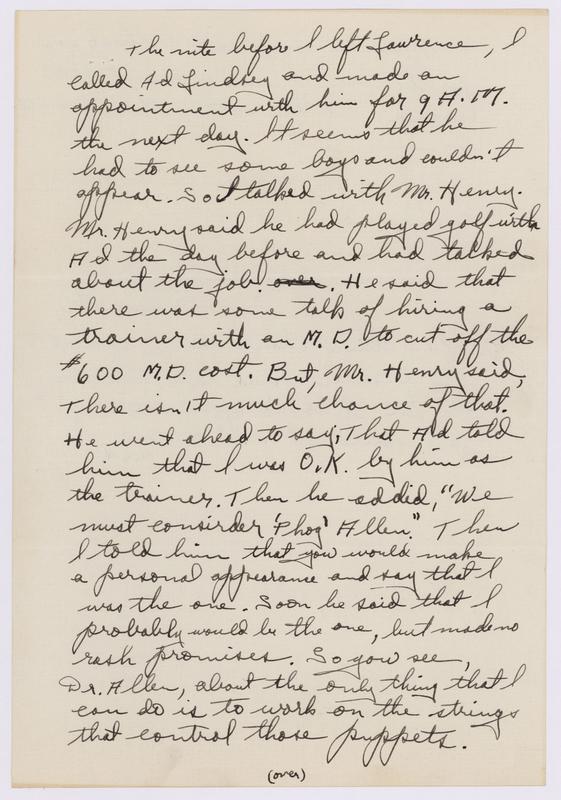 The nite before I left Lawrence, I
called Ad Lindsey and made an
appointment with him for 9 A.M.
the next day. It seems that he
had to see some boys and couldn't
appear. So I talked with Mr. Henry.
Mr. Henry said he had played golf with
Ad the day before and had talked
about the job over. He said that
there was some talk of hiring a
trainer with an M.D. to cut off the
$600 M.D. cost. But, Mr. Henry said,
There isn't much chance of that.
He went ahead to say, That Ad told
him that I was O.K. by him as
the trainer. Then he added, "We
must consirder 'Phog' Allen." Then
I told him that you would make
a personal appearance and say that I
was the one. Soon he said that I
probably would be the one, but made no
rash promises. So you see,
Dr. Allen, about the only thing that I
can do is to work on the strings
that control those puppets.
(over)